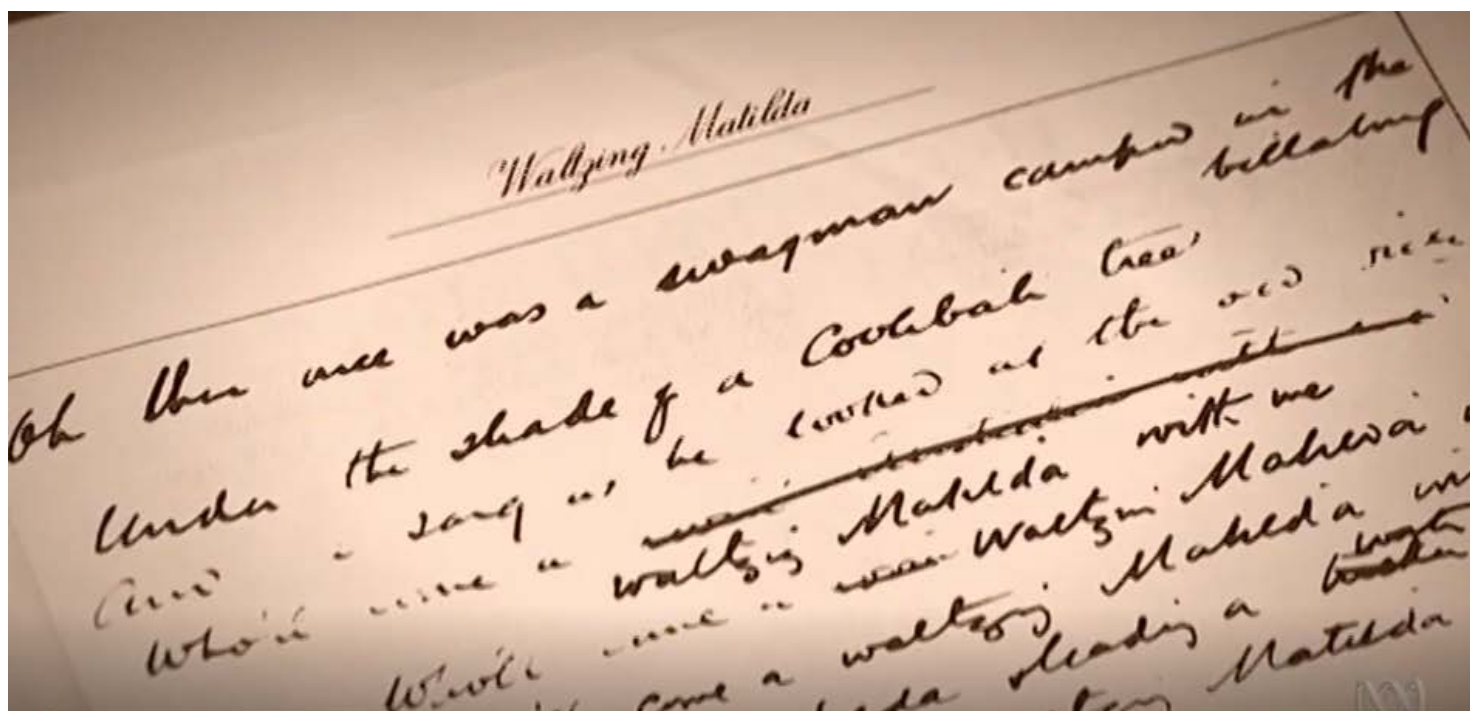 Waltzing Matilda
Oh there once was a swagman camped in the
billabong
Under the shade of a Coolibah tree
And sang as he looked at the old
Who'll come a
waltzing Matilda with me
Who'll come a Waltzing Matilda
come a waltzing Matilda
leading a
Matilda